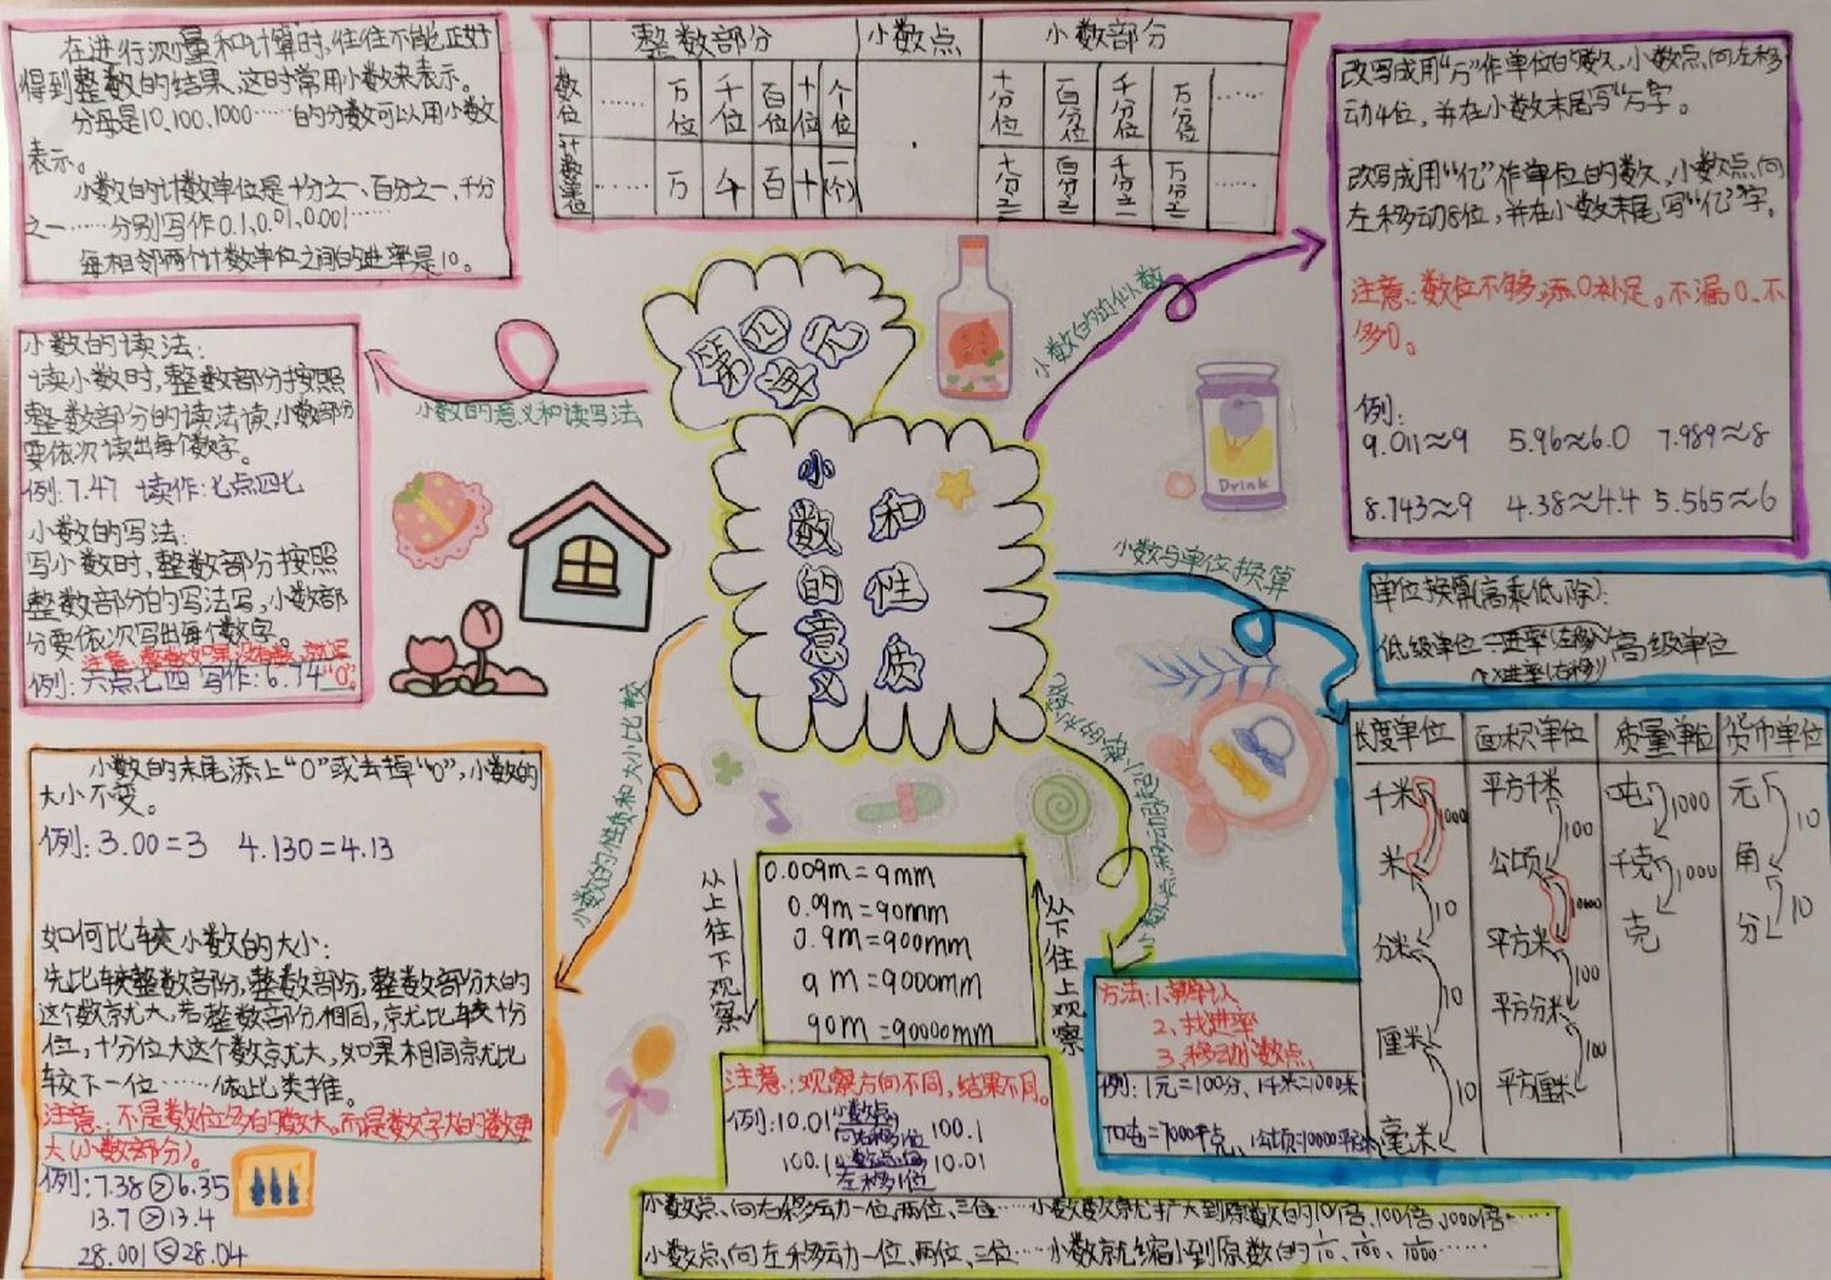 在进行测量和计算时,往往不能正好
得到整数的结果,这时常用小数来表示。
分母是10、100、1000……的分数可以用小数
表示。
小数的计数单位是十分之一、百分之一、千分
之一……分别写作0.1、0.01、0.001……
每相邻两个计数单位之间的进率是10。
整数部分 小数点 小数部分
数位 …… 万位 千位 百位 十位 个位 · 十分位 百分位 千分位 万分位 ……
计数单位 …… 万 千 百 十 一(个) 十分之一 百分之一 千分之一 万分之一 ……
改写成用“万”作单位的数,小数点向左移
动4位,并在小数末尾写“万”字。
改写成用“亿”作单位的数,小数点向
左移动8位,并在小数末尾写“亿”字。
注意:数位不够,添0补足。不漏0、不
多0。
例:
9.011≈9 5.96≈6.0 7.989≈8
8.743≈9 4.38≈4.4 5.565≈6
小数的近似数
第四单元
小数的意义
和性质
小数的意义和读写法
小数的读法:
读小数时,整数部分按照
整数部分的读法读,小数部分
要依次读出每个数字。
例:7.47 读作:七点四七
小数的写法:
写小数时,整数部分按照
整数部分的写法写,小数部
分要依次写出每个数字。
注意:整数如果没有数,就写
“0”。
例:六点七四 写作:6.74
Drink
小数与单位换算
单位换算(高乘低除):
低级单位 ÷进率(左移) 高级单位
×进率(右移)
长度单位 面积单位 质量单位 货币单位
千米 平方千米 吨 元
1000 100 1000 10
米 公顷 千克 角
10 10000 1000 10
分米 平方米 克 分
10 100
厘米 平方分米
10 100
毫米 平方厘米
小数的性质和大小比较
小数的末尾添上“0”或去掉“0”,小数的
大小不变。
例:3.00=3 4.130=4.13
如何比较小数的大小:
先比较整数部分,整数部分,整数部分大的
这个数就大,若整数部分相同,就比较十分
位,十分位大这个数就大,如果相同就比
较下一位……依此类推。
注意:不是数位多的数大。而是数字大的数更
大(小数部分)。
例:7.38>6.35
13.7>13.4
28.001<28.04
从上往下观察
0.009m=9mm
0.09m=90mm
0.9m=900mm
9m=9000mm
90m=90000mm
从下往上观察
注意:观察方向不同,结果不同。
例:10.01 小数点向右移1位 100.1
100.1 小数点向左移1位 10.01
小数点向右移动一位、两位、三位……小数数就扩大到原数的10倍、100倍、1000倍……
小数点向左移动一位、两位、三位……小数就缩小到原数的1/10、1/100、1/1000……
2、找进率
3、移动小数点
例:1元=100分、1千米=1000米